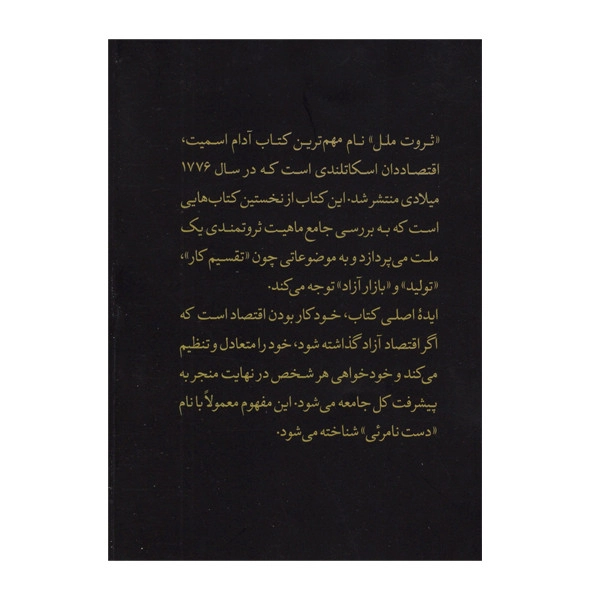 «ثروت ملل» نام مهم‌ترین کتاب آدام اسمیت،
اقتصاددان اسکاتلندی است که در سال ۱۷۷۶
میلادی منتشر شد. این کتاب از نخستین کتاب‌هایی
است که به بررسی جامع ماهیت ثروتمندی یک
ملت می‌پردازد و به موضوعاتی چون «تقسیم کار»،
«تولید» و «بازار آزاد» توجه می‌کند.
ایدهٔ اصلی کتاب، خودکار بودن اقتصاد است که
اگر اقتصاد آزاد گذاشته شود، خود را متعادل و تنظیم
می‌کند و خودخواهی هر شخص در نهایت منجر به
پیشرفت کل جامعه می‌شود. این مفهوم معمولاً با نام
«دست نامرئی» شناخته می‌شود.